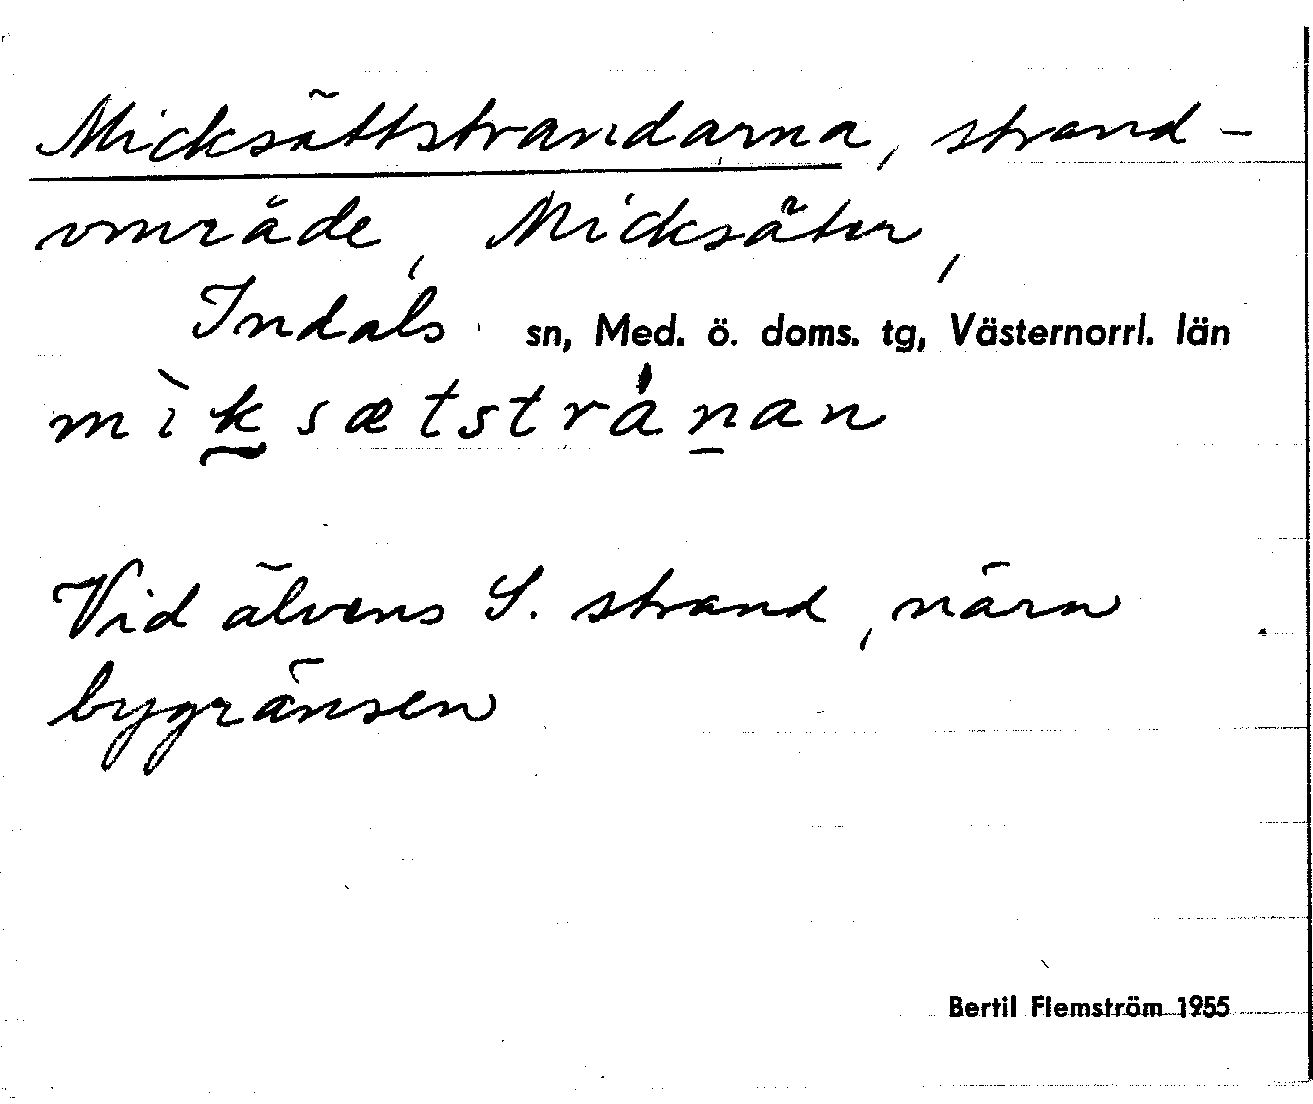 Micksättstrandarna, strand-
område, Micksäter,
Indals sn, Med. ö. doms. tg, Västernorrl. län
mìksætstránan
Vid älvens S. strand, nära
bygränsen
Bertil Flemström 1955